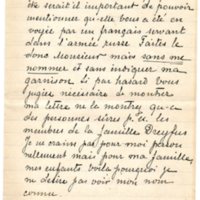 elle serait il important de pouvoir
mentionner qu'elle vous a été en
voyée par un français servant
dans l'armée russe. Faites le
donc Monsieur mais sans me
nommer et sans indiquer ma
garnison. Si par hasard vous
jugiez necessaire de montrer
ma lettre ne la montrez qu-a
des personnes sûres p. ex. les
membres de la famille Dreyfus
Je ne crains pas pour moi person
nellement mais pour ma famille,
mes enfants voilà pourquoi je
ne désire pas voir mon nom
connu.